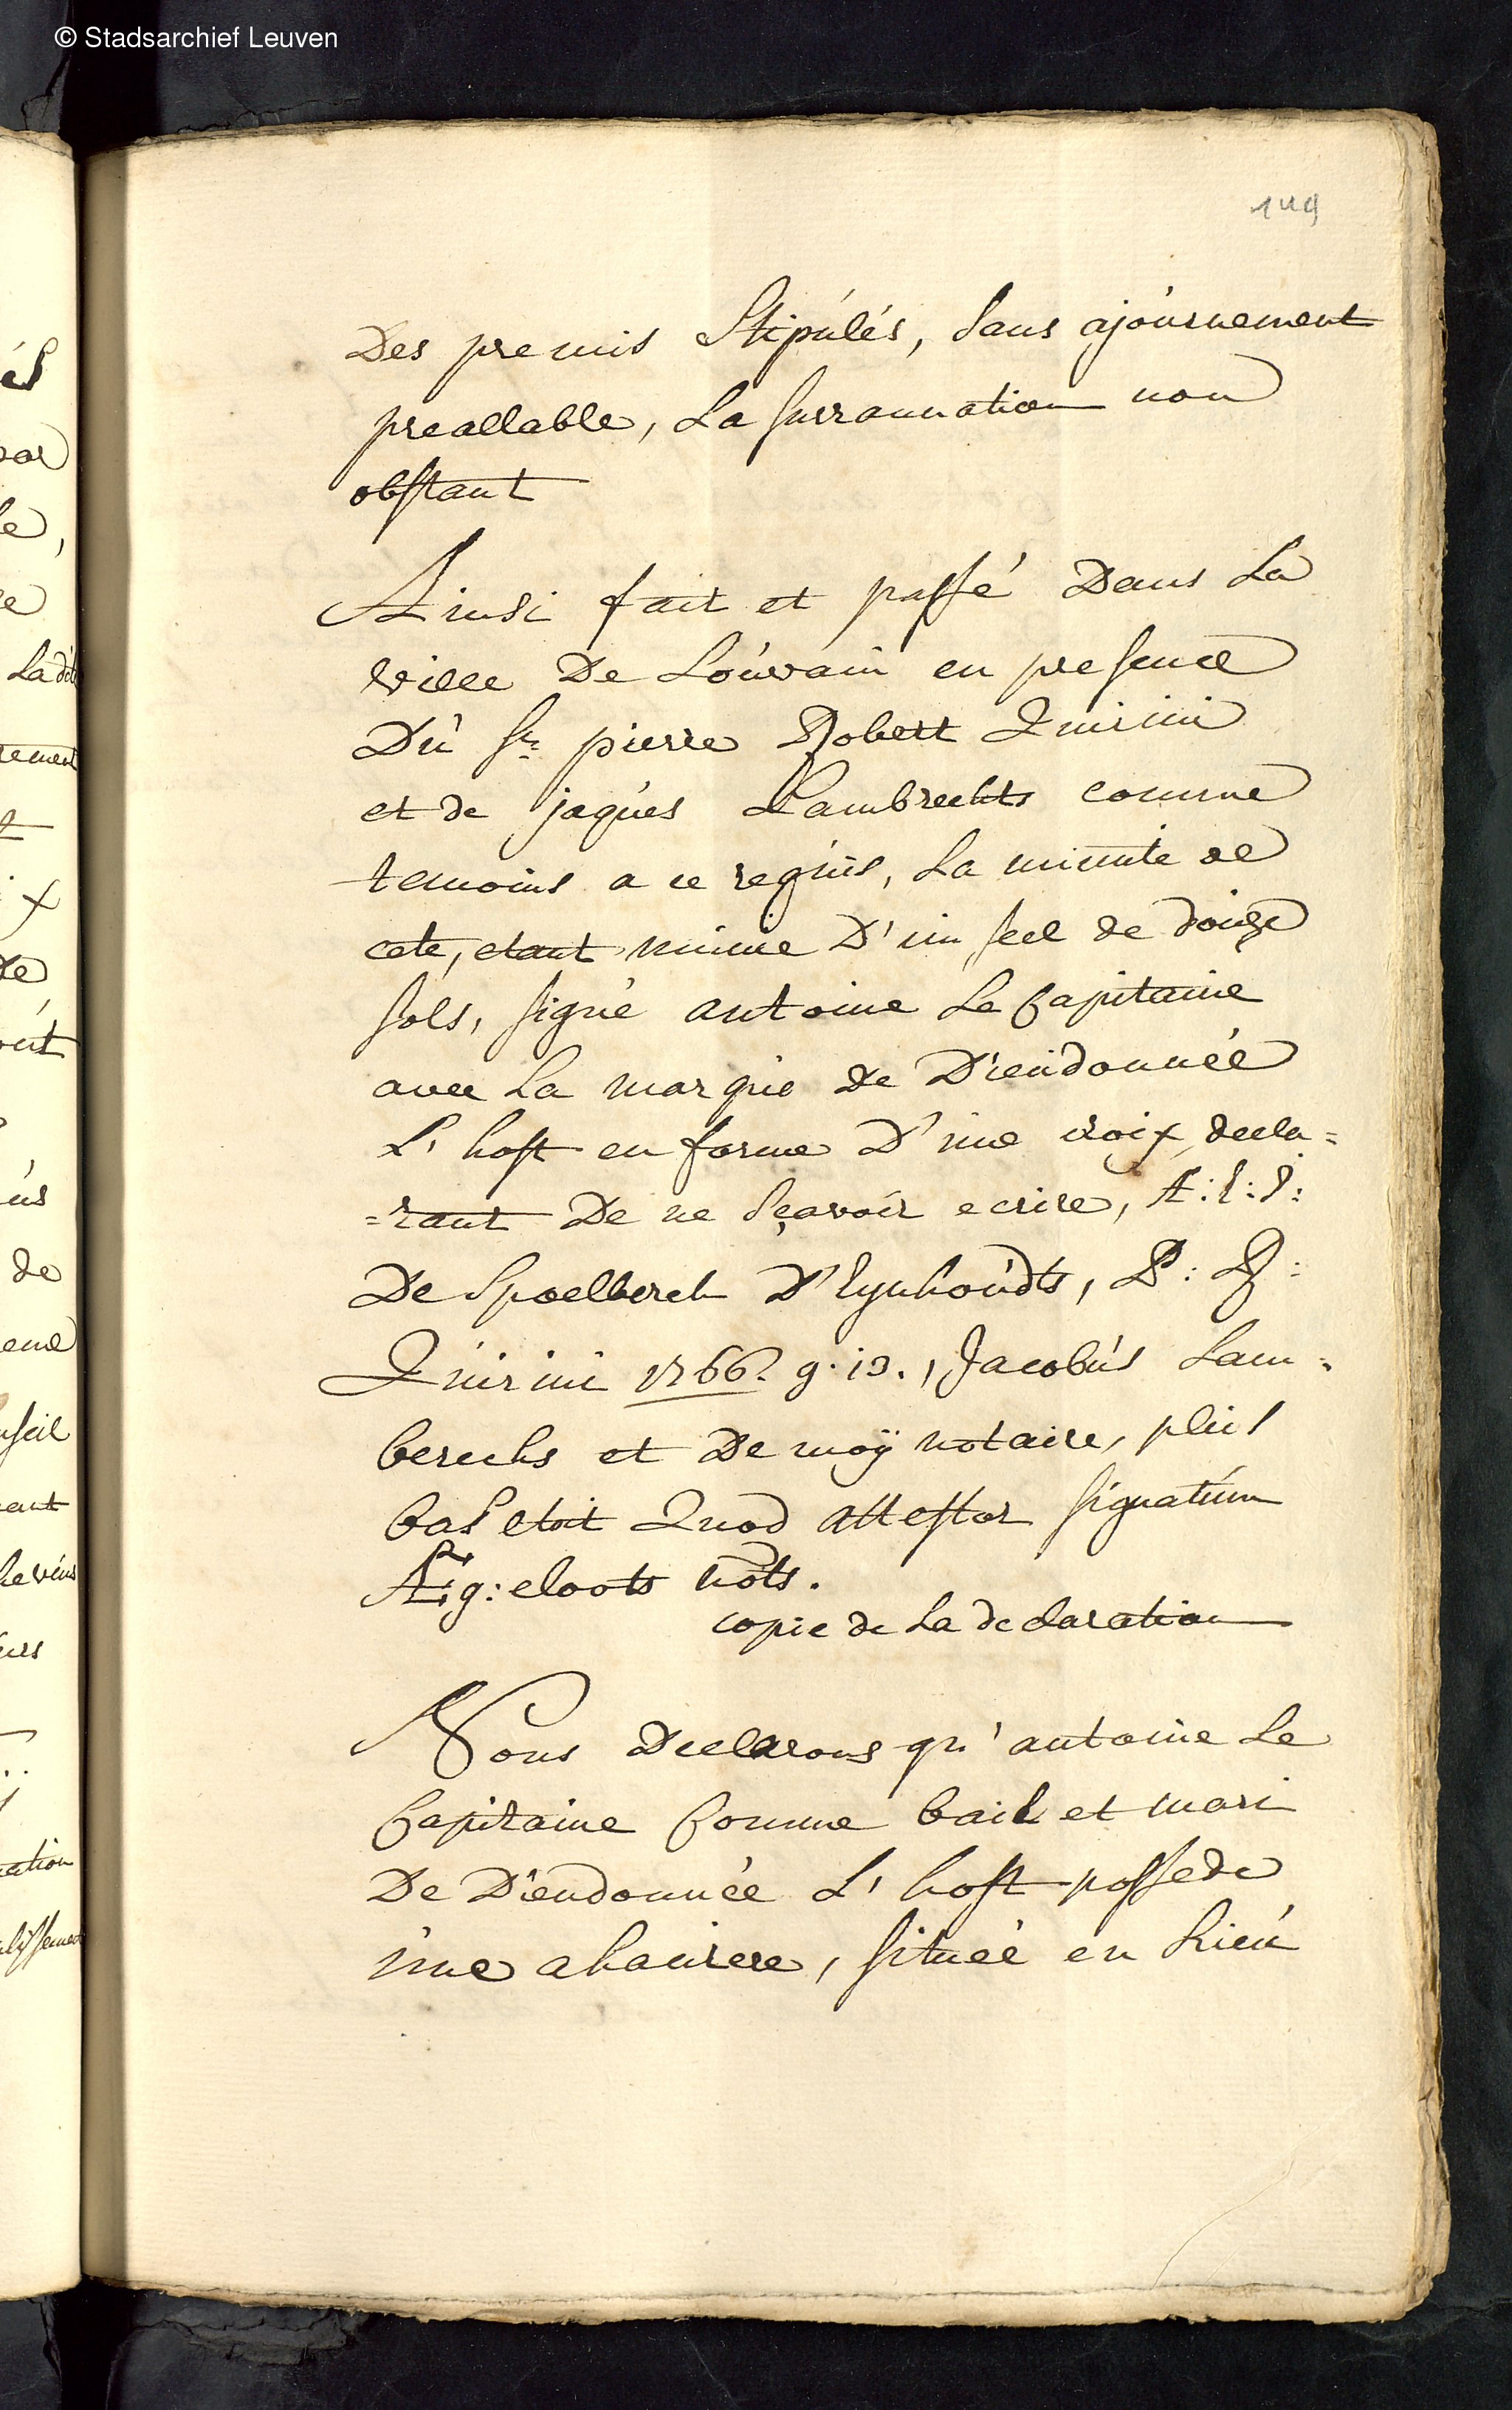 © Stadsarchief Leuven
149
Des premis Stipúlés, Sans ajóurnement
preallable, La surrannation non
obstant
Ainsi fait et passé Dans La
ville De Loúvain en presence
Dú Sr. pierre Robert Quirini
et de jaqúes Lambrechts comme
temoins a ce reqúis, La minute de
cete, etant munie D'un seel de doúze
sols, signé antoine Le Capitaine
avec La marqúe de Dieúdonnée
L'host en forme D'úne croix, decla=
=rant De ne Sçavoir ecrire, A: l: J:
De Spoelberch D'Eynhoúdts, P: R:
Quirini 1766. 9. 13., Jacobús Lam=
berechs et De moÿ notaire, plús
bas etoit Quod attestor signatúm
A: g: cloots nots.
copie de La declaration
Nous Declarons qu'antoine Le
Capitaine Comme bail et mari
De Dieudonnée L'host possede
úne chaúiere, situéé en Lieú